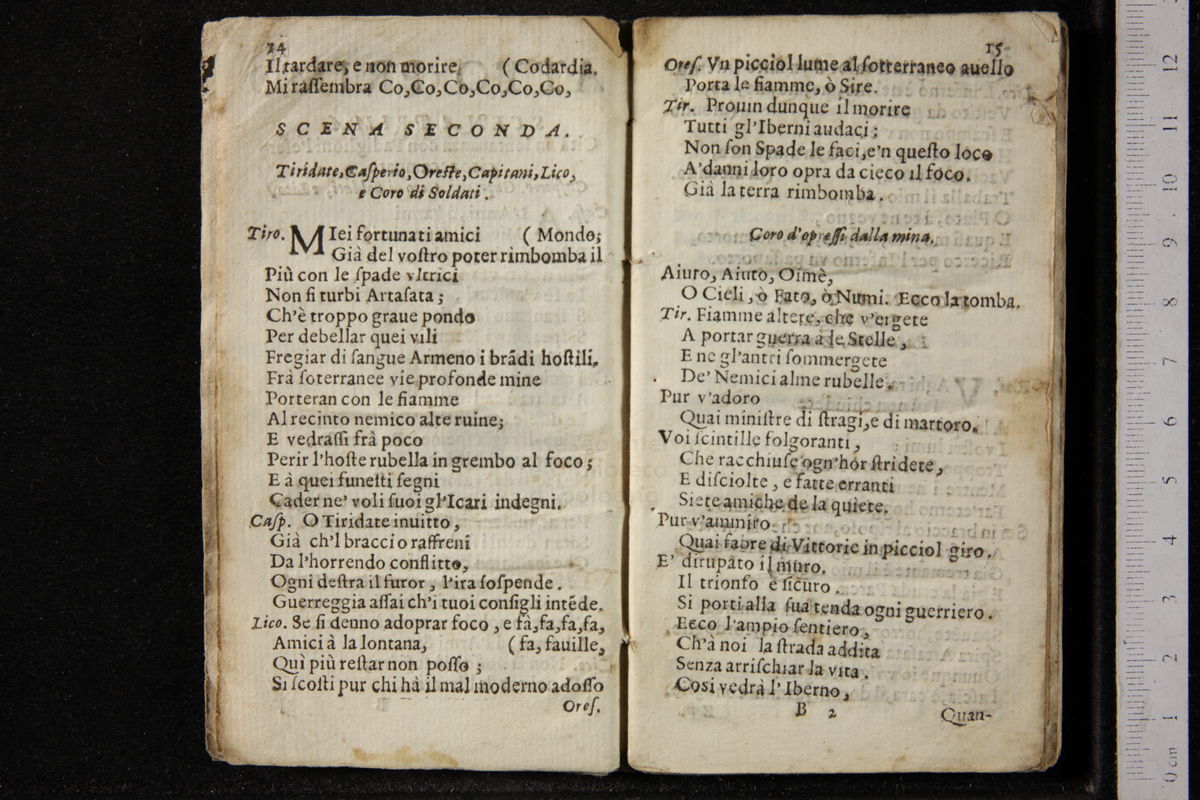 14
Il tardare, e non morire ( Codardia.
Mi rassembra Co, Co, Co, Co, Co, Co,
SCENA SECONDA.
Tiridate, Casperio, Oreste, Capitani, Lico,
e Coro di Soldati.
Tiro. MIei fortunati amici ( Mondo;
Già del vostro poter rimbomba il
Più con le spade vltrici
Non si turbi Artasata;
Ch'è troppo graue pondo
Per debellar quei vili
Fregiar di sangue Armeno i brãdi hostili.
Frà soterranee vie profonde mine
Porteran con le fiamme
Al recinto nemico alte ruine;
E vedrassi frà poco
Perir l'hoste rubella in grembo al foco;
E à quei funesti segni
Cader ne' voli suoi gl'Icari indegni.
Casp. O Tiridate inuitto,
Già ch'l braccio raffreni
Da l'horrendo conflitto,
Ogni destra il furor, l'ira sospende.
Guerreggia assai ch'i tuoi consigli intẽde.
Lico. Se si denno adoprar foco, e fà, fa, fa, fa,
Amici à la lontana, ( fa, fauille,
Quì più restar non posso;
Si scosti pur chi hà il mal moderno adosso
Ores.
15
Ores. Vn picciol lume al sotterraneo auello
Porta le fiamme, ò Sire.
Tir. Prouin dunque il morire
Tutti gl'Iberni audaci;
Non son Spade le faci, e'n questo loco
A'danni loro opra da cieco il foco.
Già la terra rimbomba.
Coro d'opressi dalla mina.
Aiuto, Aiuto, Oimè,
O Cieli, ò Fato, ò Numi. Ecco la tomba.
Tir. Fiamme altere, che v'ergete
A portar guerra à le Stelle,
E ne gl'antri sommergete
De' Nemici alme rubelle.
Pur v'adoro
Quai ministre di stragi, e di martoro.
Voi scintille folgoranti,
Che racchiuse ogn'hor stridete,
E disciolte, e fatte erranti
Siete amiche de la quiete.
Pur v'ammiro
Quai fabre di Vittorie in picciol giro.
E' dirupato il muro.
Il trionfo è sicuro.
Si porti alla sua tenda ogni guerriero.
Ecco l'ampio sentiero,
Ch'à noi la strada addita
Senza arrischiar la vita.
Cosi vedrà l'Iberno,
B 2
Quan-
0 cm 1 2 3 4 5 6 7 8 9 10 11 12